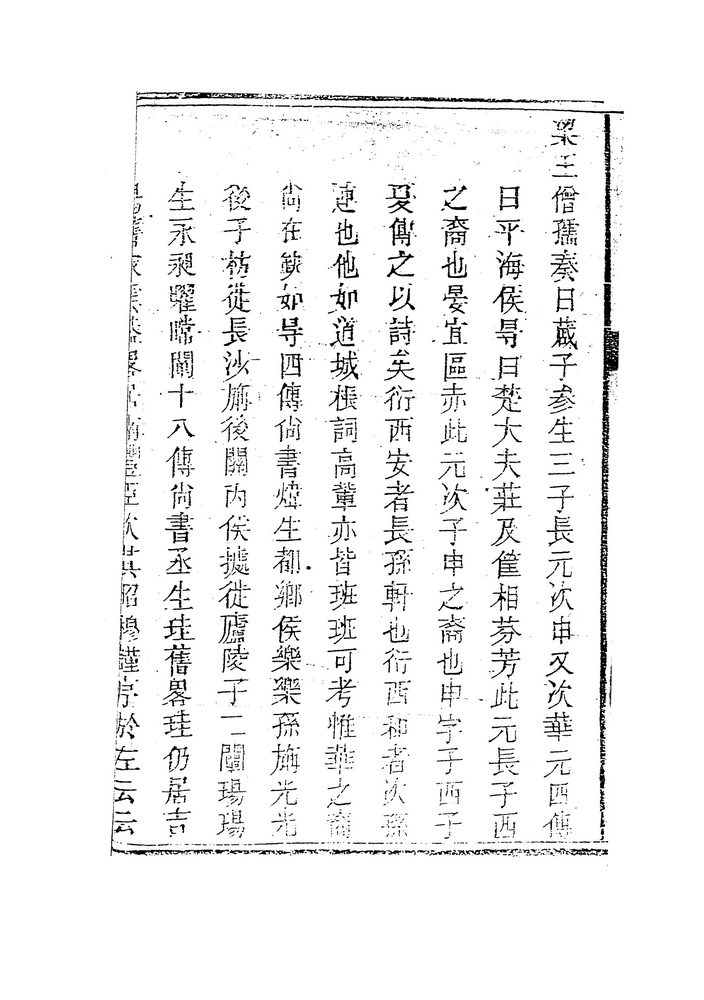 梁王僧孺奏曰蕆子參生三子長元次申又次華元四傳
曰平海侯㝵曰楚大夫莊及筐相芬芳此元長子西
之裔也晏宜區赤此元次子申之裔也申字子西子
㚆傳之以詩矣衍西安者長孫軒也衍西和者次孫
連也他如道城棖詞高葷亦皆班班可考惟華之裔
尙在缺如㝵四傳尙書煒生都鄉侯樂樂孫旃光光
後子枋徙長沙旃後關內侯據徙廬陵子二闡瑒瑒
生永昶曜矘闡十八傳尙書丞生珪舊畧珪仍居吉
居南豐 次其昭穆謹序於左云云